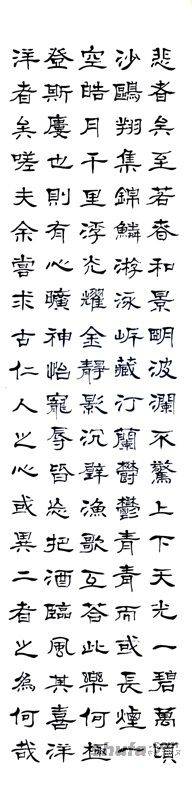 悲者矣至若春和景明波瀾不驚上下天光一碧萬頃
沙鷗翔集錦鱗游泳岸茝汀蘭鬱鬱青青而或長煙一
空皓月千里浮光耀金靜影沉璧漁歌互答此樂何極
登斯樓也則有心曠神怡寵辱皆忘把酒臨風其喜洋
洋者矣嗟夫余嘗求古仁人之心或異二者之為何哉